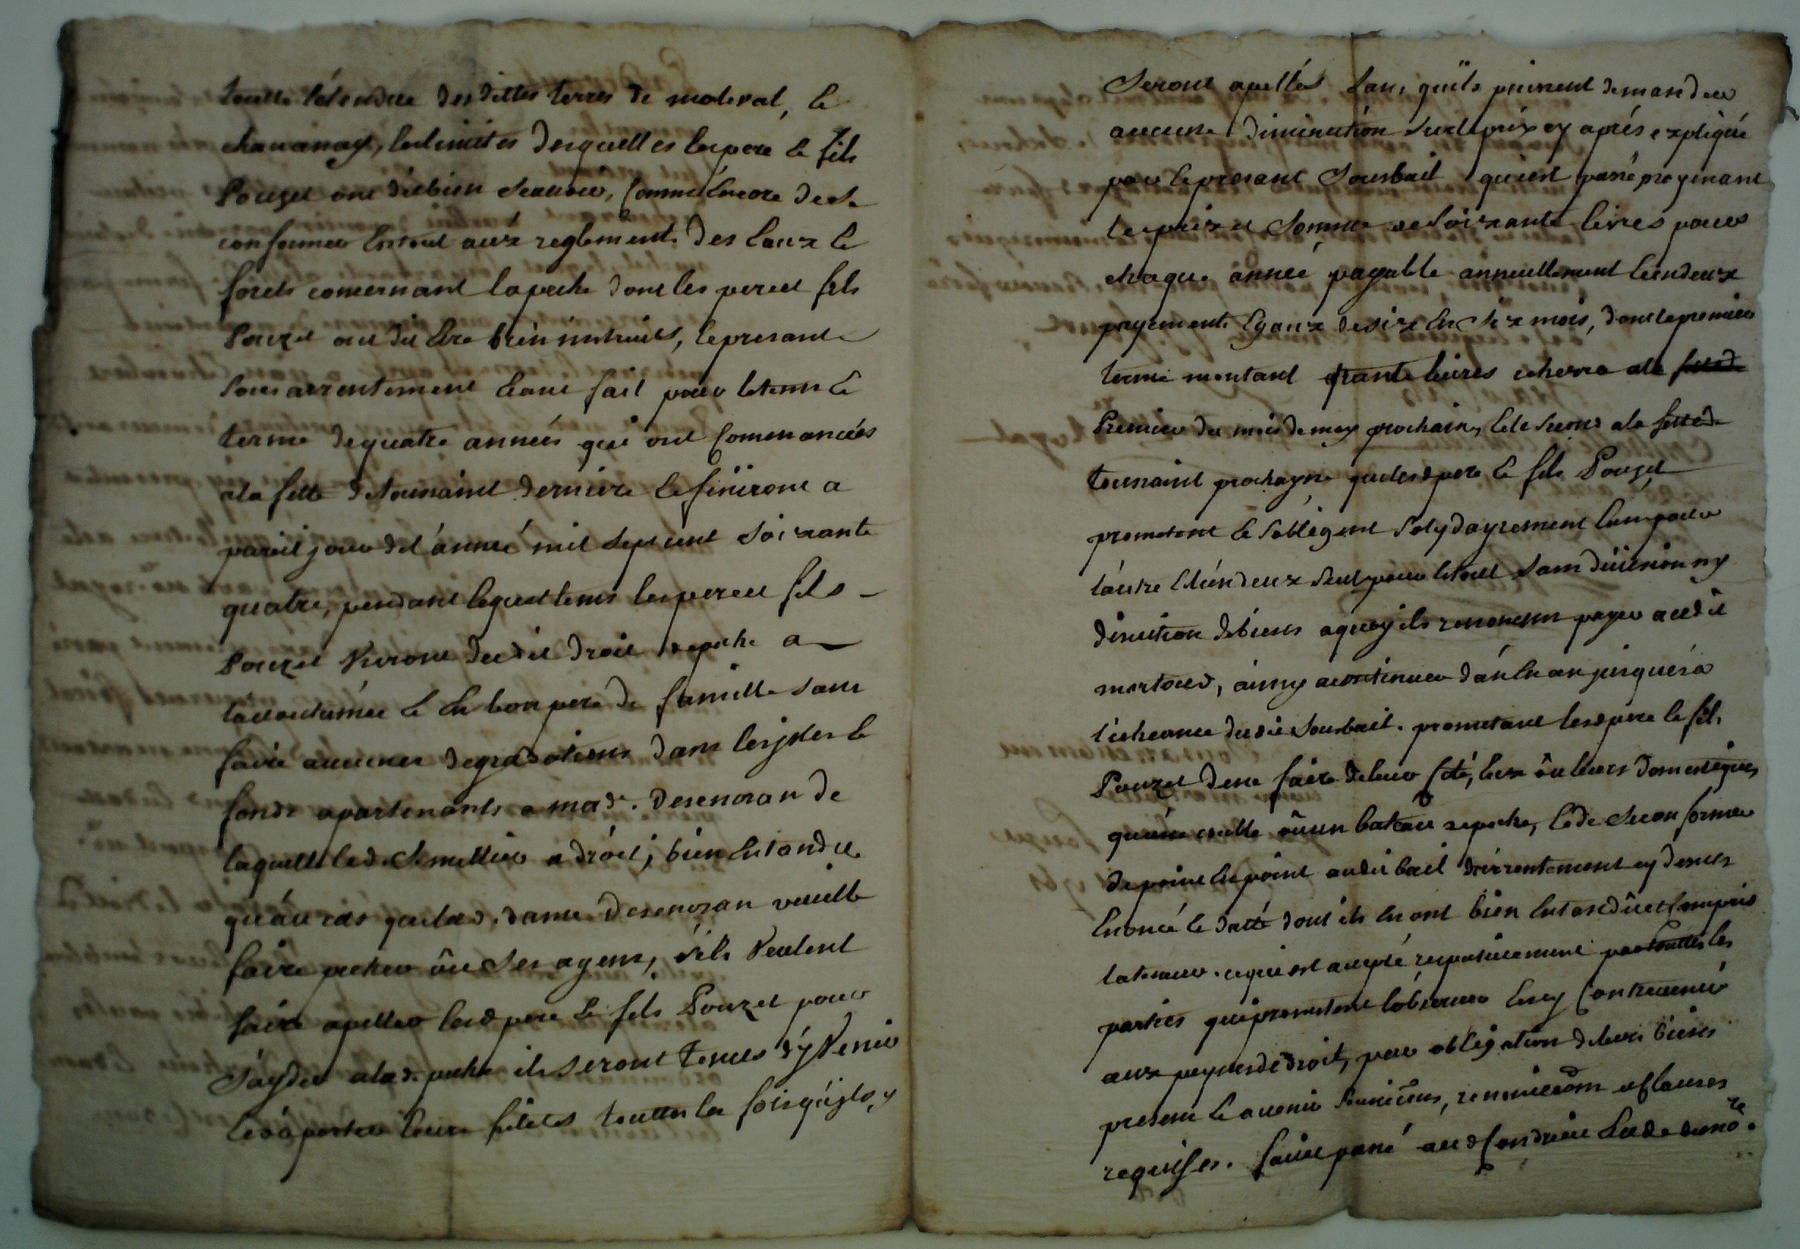 toutte l'étendue desdittes terres de maleval, le
chavanay, les limittes desquelles les pere le fils
Pouzet ont dit bien scauoir, comme encore de se
conformer entout aux reglements des Eaux le
forets concernant la peche dont les pere et fils
Pouzet ont dit Etre bien instruits, le presant
sous arrentement Etant fait pour le tems le
terme de quatre années qui ont commancées
a la fette de Toussaint derniere le finiront a
pareil jour de l'année mil sept cent soixante
quatre, pendant lequel tems les pere et fils
Pouzet Viront dudit droit de peche a
l'accoutumée le En bon pere de famille sans
faire aucunes degradations dans les isles le
fonds apartenants a mad.e Desenozan de
laquelle led. Semellier a droit, bien Entandu
qu'au cas que lad. dame Desenozan veuille
faire pecher ôu ses agens, s'ils veulent
faire apeller lesd pere le fils Pouzet pour
s'ayder a lad. peche ils seront tenus d'y Venir
le d'aporter leurs filets touttes les fois qu'ils y
Seront apellés sans qu'ils puissent demander
aucune diminution sur le prix cy aprés expliqué
pour le presant sousbail qui est passé moyenant
le prix et somme de soixante livres pour
chaque année payable annuellement En deux
payements Egaux de six En six mois, dont le premier
terme montant trante livres echerra a la fette d
Premier du mois de may prochain, le le second a la fette de
toussaint prochayne que lesd pere le fils Pouzet
prometent le s'obligent solydayrement l'un pour
l'autre l'un d'eux seul pour le tout sans division ny
discution de biens a quoy ils renoncent payer audit
mertoud, ainsy a continuer d'an En an jusques a
l'echeance dudit sousbail. prometant lesd pere le fils
Pouzet de ne faire de leur coté, Eux ôu leurs domestiques
qu'une ôu un bateau de peche, le de se conformer
de point En point audit bail d'arrentement cy dessus
Enoncé le datté dont ils En ont bien Entandu et compris
la teneur. ce qui est accepté respectivement par touttes les
parties qui prometent l'observer En y contrevenir
aux peynes de droit, par obligation de leurs biens
presens le avenir renonciations clauses
requises. fait le passé aud Condrieu Etude du no.re